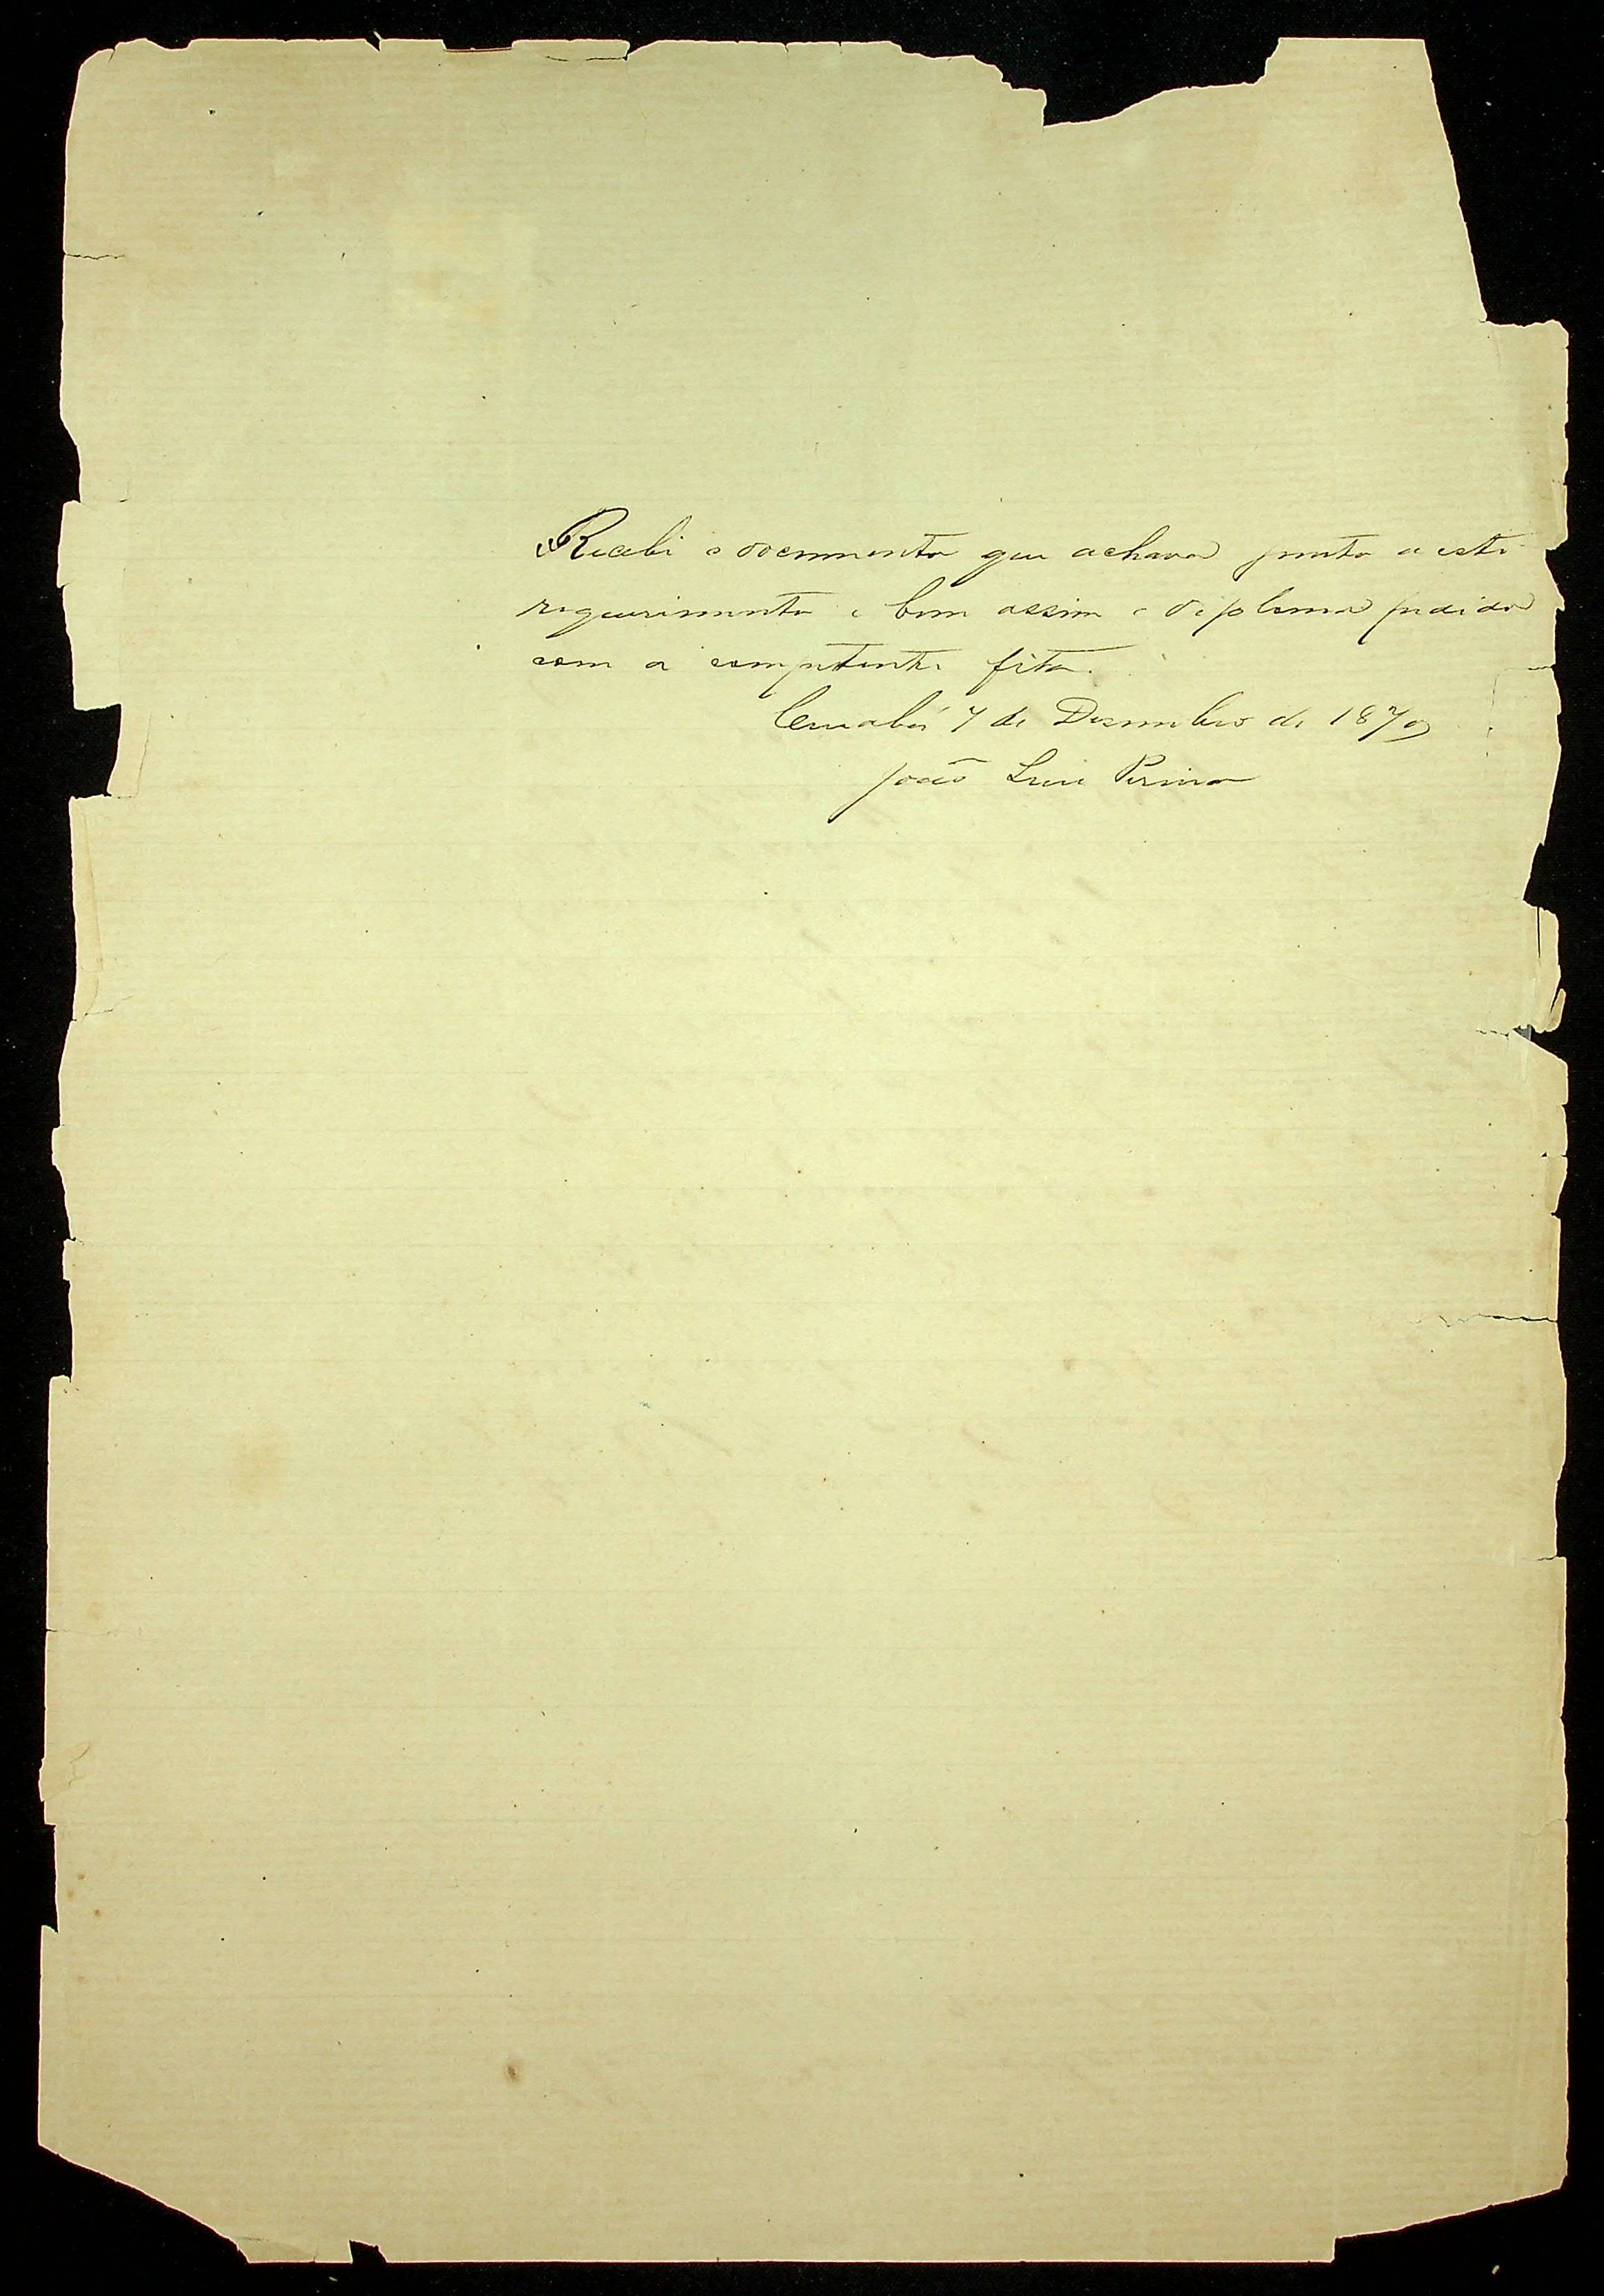 Recebi o documento que achava junto a este
requerimento e bem assim o diploma pedido
com a competente fita.
Cuiabá 7 de Desembro de 1879
João Luis Pereira